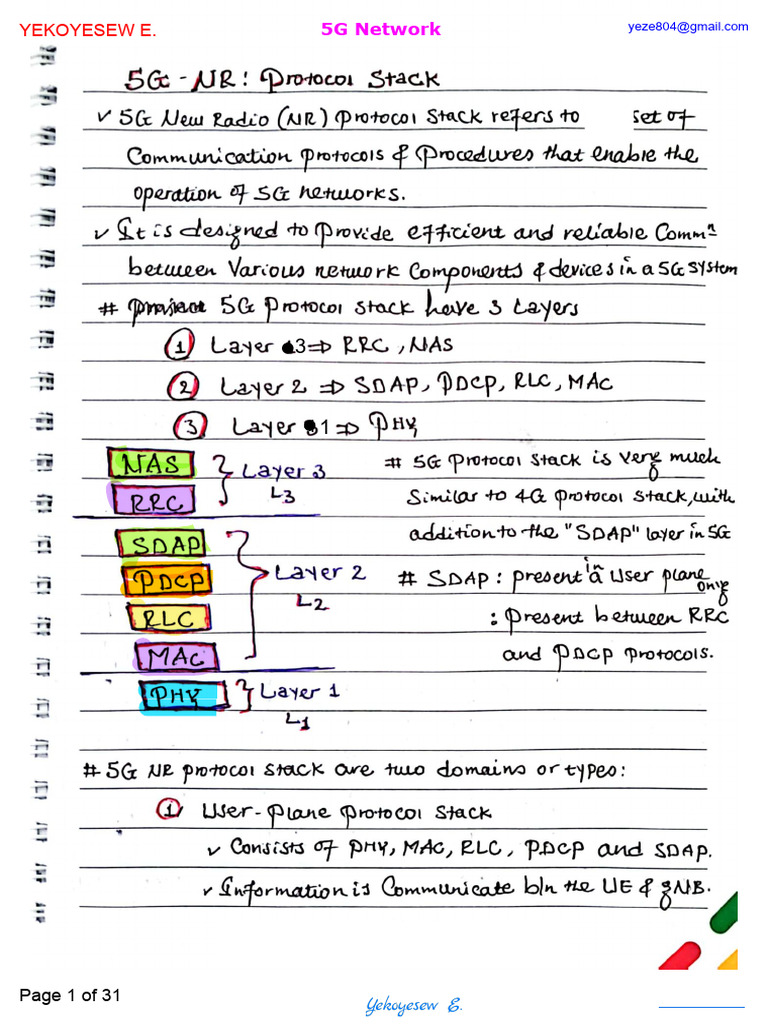 YEKOYESEW E.
5G Network
yeze804@gmail.com
5G - NR : Protocol Stack
✓ 5G New Radio (NR) protocol stack refers to set of
Communication protocols & procedures that enable the
operation of 5G networks.
✓ It is designed to provide efficient and reliable Commⁿ
between Various network Components & devices in a 5G system
# 5G protocol stack have 3 Layers
1 Layer 3 ⇒ RRC, NAS
2 Layer 2 ⇒ SDAP, PDCP, RLC, MAC
3 Layer 1 ⇒ PHY
NAS
RRC
Layer 3
L3
SDAP
PDCP
RLC
MAC
Layer 2
L2
PHY
Layer 1
L1
# 5G protocol stack is very much
Similar to 4G protocol stack, with
addition to the "SDAP" layer in 5G
# SDAP : present in a User plane only
: present between RRC
and PDCP protocols.
# 5G NR protocol stack are two domains or types:
1 User-plane protocol stack
✓ Consists of PHY, MAC, RLC, PDCP and SDAP.
✓ Information is Communicate b/n the UE & gNB.
Page 1 of 31
Yekoyesew E.